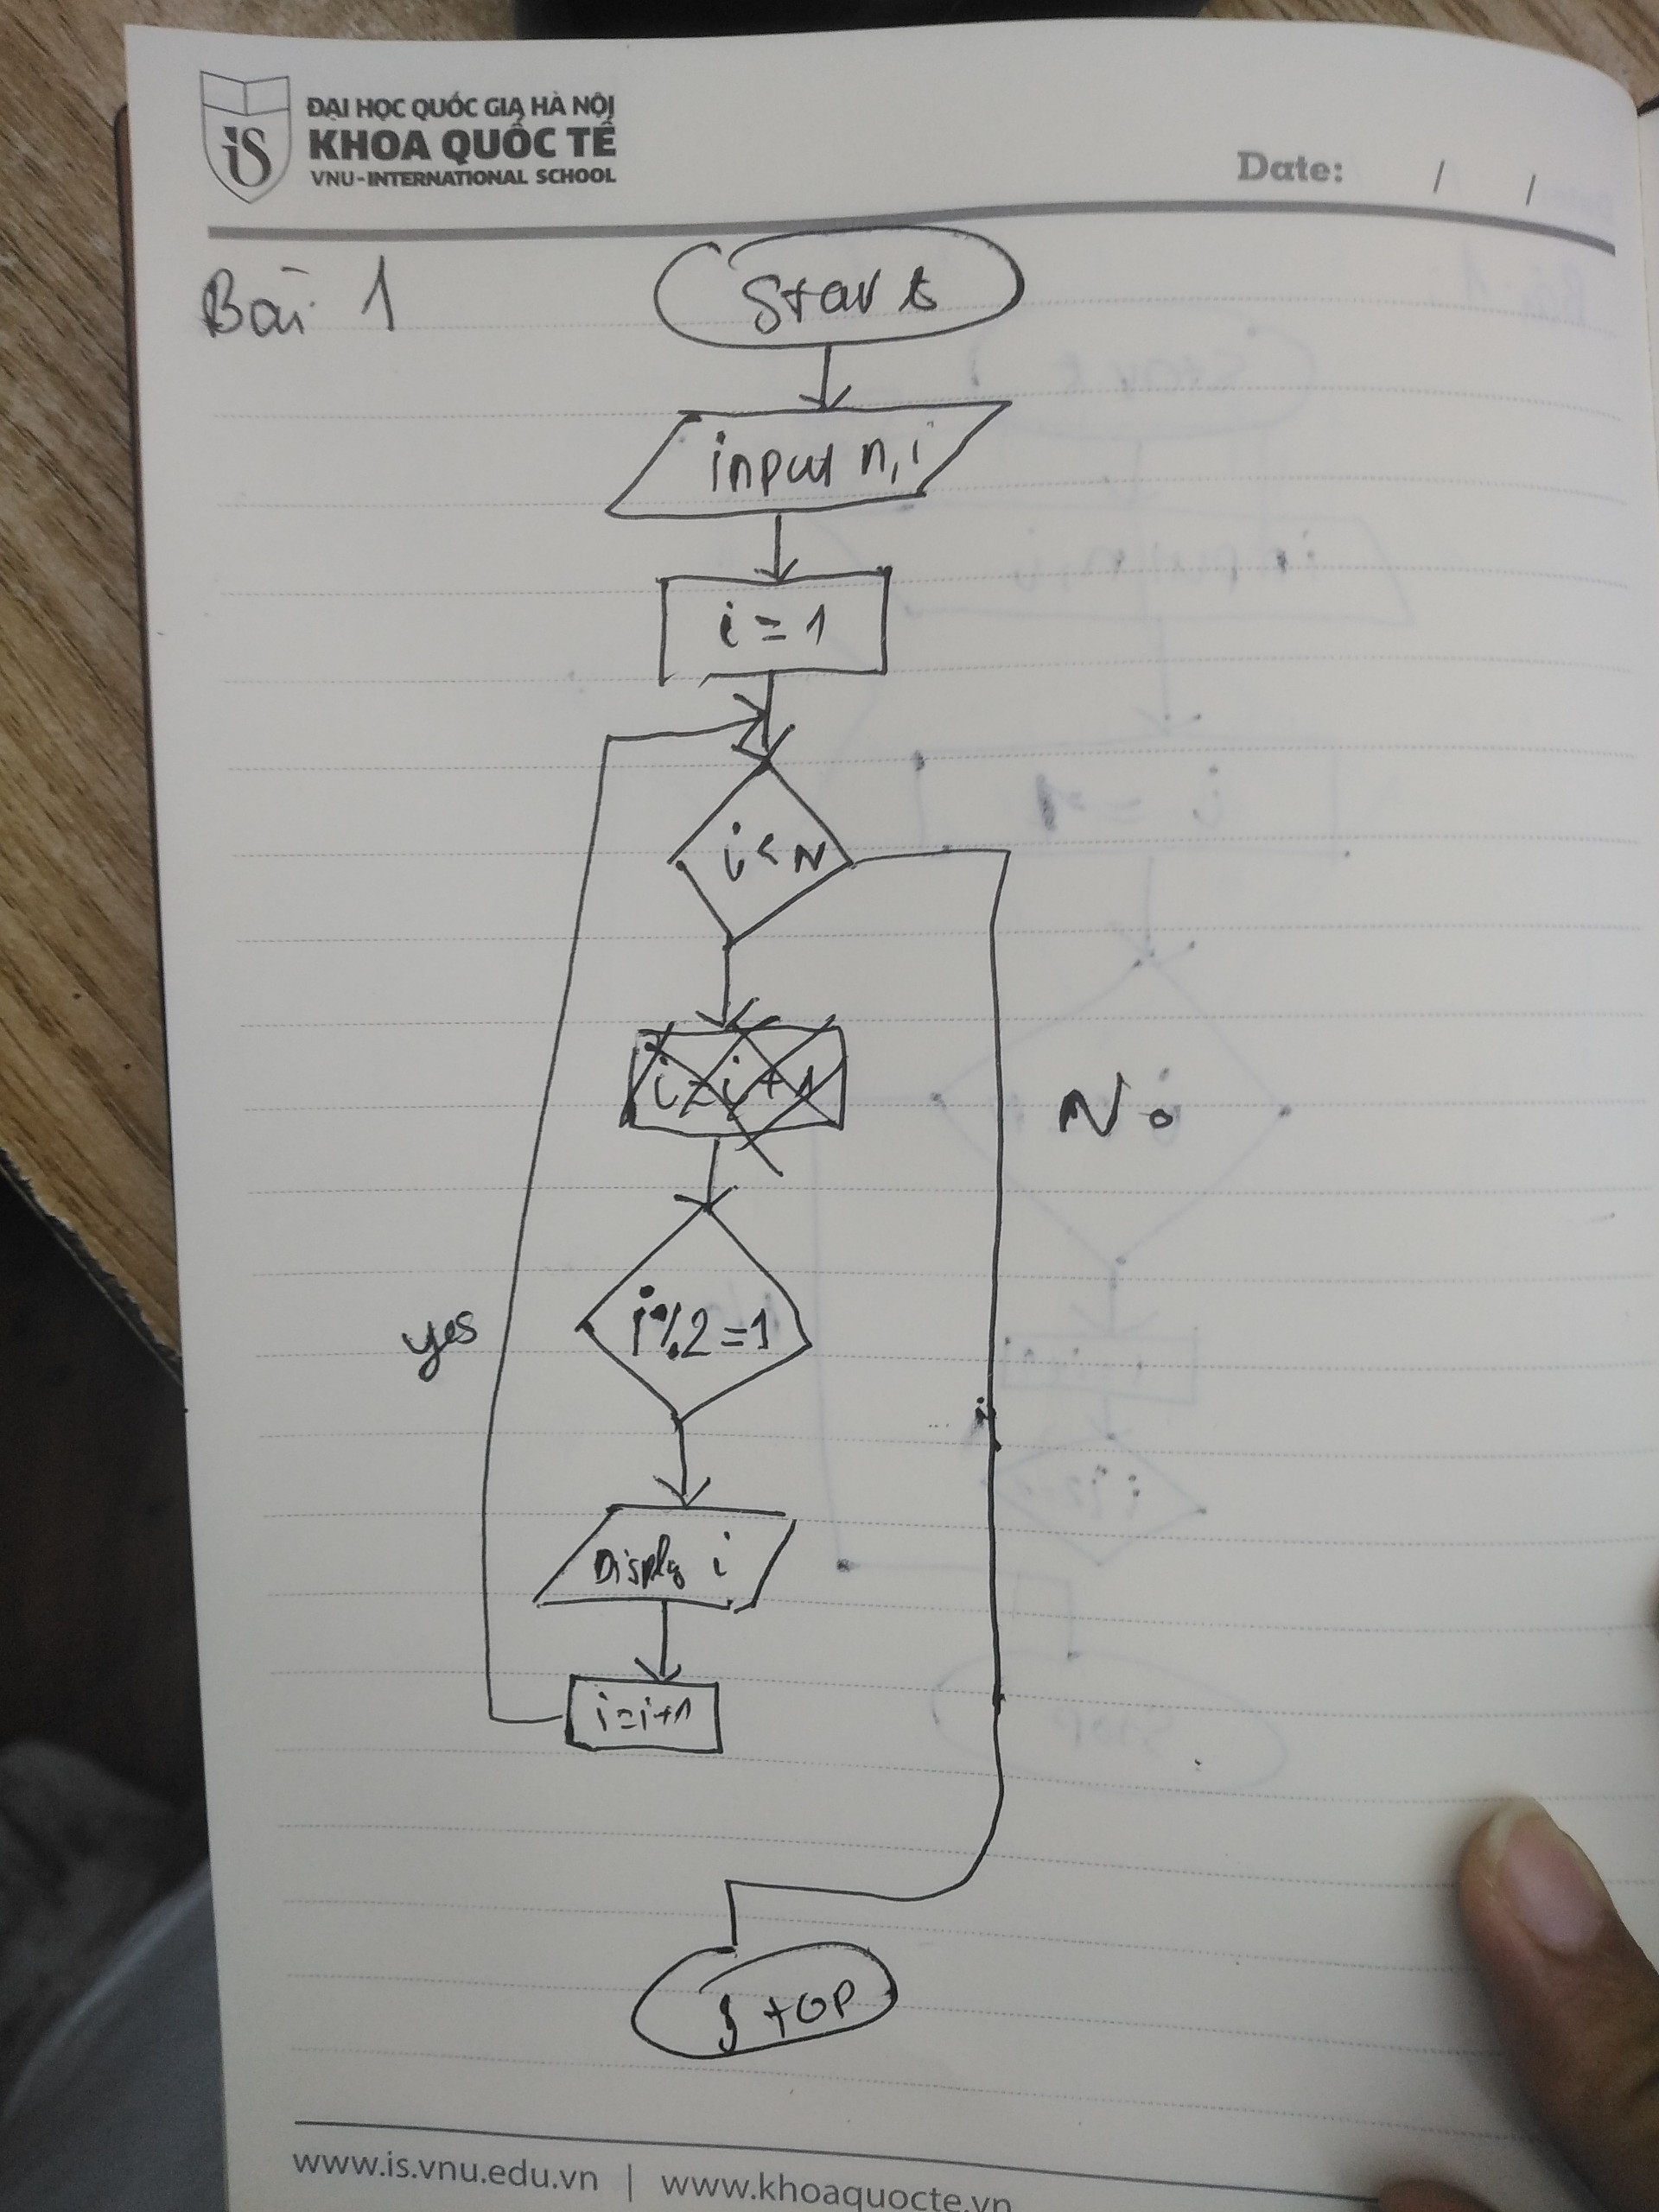 ĐẠI HỌC QUỐC GIA HÀ NỘI
KHOA QUỐC TẾ
iS
VNU-INTERNATIONAL SCHOOL
Date: / /
Bài 1
Start
input n, i
i = 1
i < N
i = i + 1
No
i%2 = 1
yes
Display i
i = i + 1
Stop
www.is.vnu.edu.vn | www.khoaquocte.vn